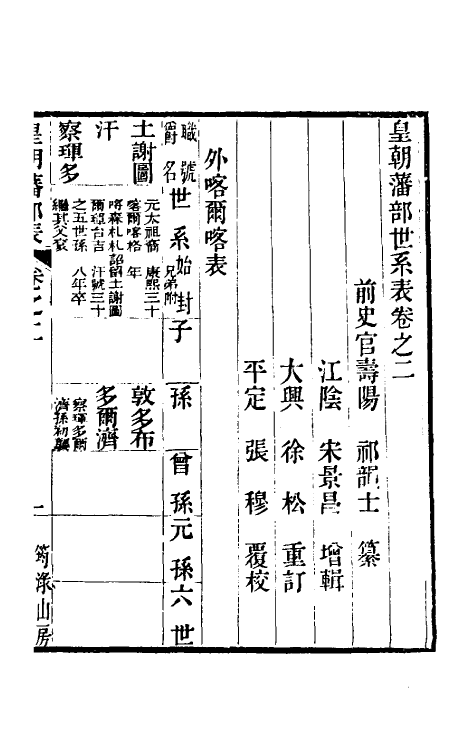 皇朝藩部世系表卷之二
前史官壽陽 祁韻士 纂
江陰 宋景昌 增輯
大興 徐松 重訂
平定 張穆 覆校
外喀爾喀表
職號
爵名
世系
始封
兄弟附
子
孫
曾孫
元孫
六世
土謝圖
汗
察琿多
元太祖裔
喀爾喀格
埒森札札
爾琿台吉
之五世孫
繼其父袞
康熙三十
年
詔留土謝圖
汗號三十
八年卒
敦多布
多爾濟
察琿多爾
濟孫初襲
皇朝藩部表
卷之二
一
筠淥山房